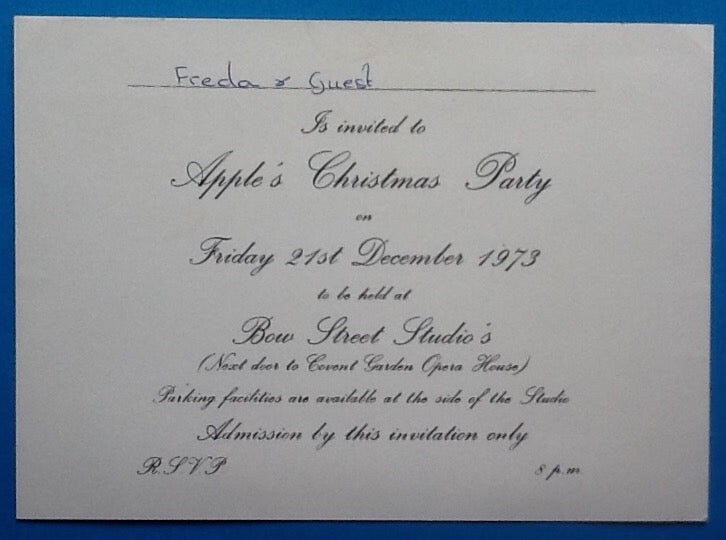 Freda & Guest
Is invited to
Apple's Christmas Party
on
Friday 21st December 1973
to be held at
Bow Street Studio's
(Next door to Covent Garden Opera House)
Parking facilities are available at the side of the Studio
Admission by this invitation only
R.S.V.P. 8 p.m.